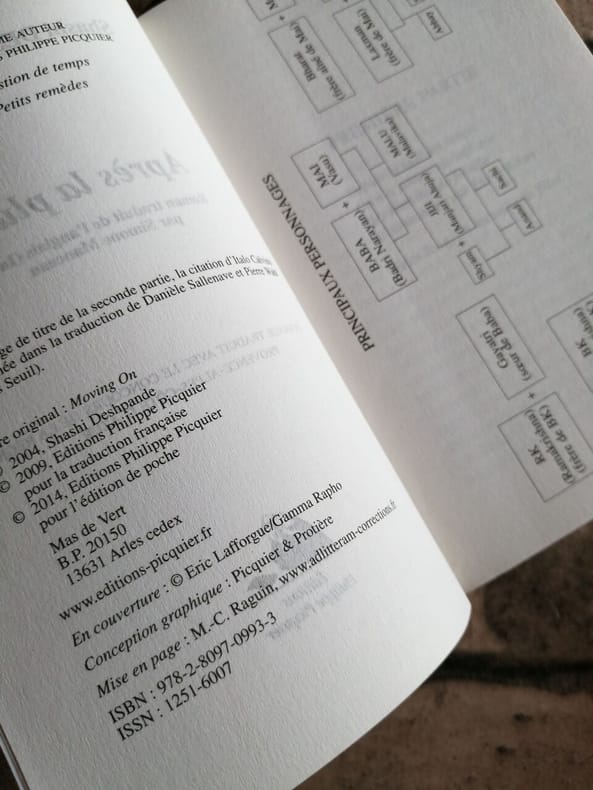 ME AUTEUR
S PHILIPPE PICQUIER
stion de temps
Petits remèdes
Après la plu
roman traduit de l'anglais
par Simone Manceau
ge de titre de la seconde partie, la citation d'Italo
ée dans la traduction de Danièle Sallenave et Pierre
Seuil).
re original : Moving On
© 2004, Shashi Deshpande
© 2009, Editions Philippe Picquier
pour la traduction française
© 2014, Editions Philippe Picquier
pour l'édition de poche
Mas de Vert
B.P. 20150
13631 Arles cedex
www.editions-picquier.fr
En couverture : © Eric Lafforgue/Gamma Rapho
Conception graphique : Picquier & Protière
Mise en page : M.-C. Raguin, www.adlitteram-corrections.fr
ISBN : 978-2-8097-0993-3
ISSN : 1251-6007
PRINCIPAUX PERSONNAGES
BABA
(Badri Narayan)
+
MAI
(Vasu)
+
Bharat
(frère aîné de Mai)
Laxman
(frère de Mai)
+
JIJI
(Manjari Ahuja)
MALU
(Malavika)
Shyam
+
Anand
Sachi
RK
(Ramakrishna)
(frère de BK)
+
Gayatri
(sœur de Baba)
BK